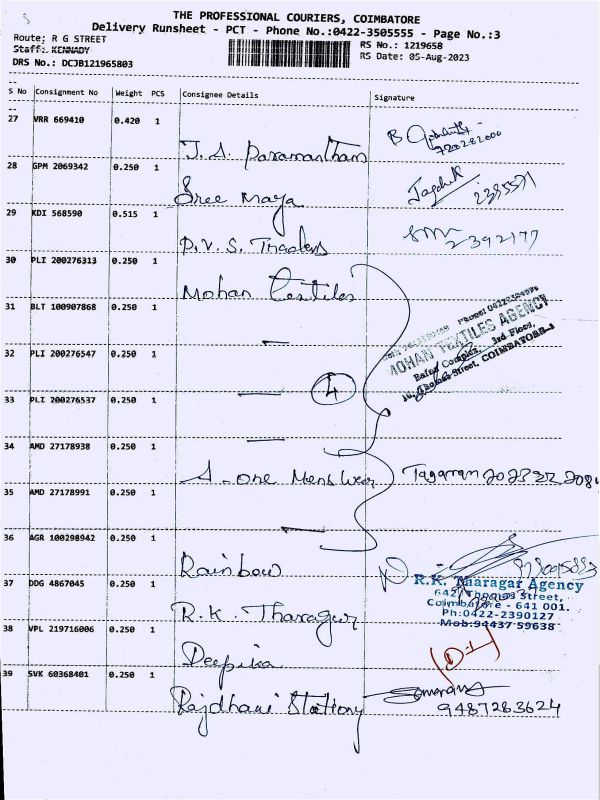 THE PROFESSIONAL COURIERS, COIMBATORE
Delivery Runsheet - PCT - Phone No.:0422-3505555 - Page No.:3
Route; R G STREET
Staff: KENNADY
DRS No.: DCJB121965803
RS No.: 1219658
RS Date: 05-Aug-2023
S No Consignment No Weight PCS Consignee Details Signature
27 VRR 669410 0.420 1
J. A. Paramantham
28 GPM 2069342 0.250 1
Sree Maya
29 KDI 568590 0.515 1
2392177
P.V.S. Traders
30 PLI 200276313 0.250 1
Mohan Textiles
31 BLT 100907868 0.250 1
MOHAN TEXTILES AGENCY
3rd Floor,
Street, COIMBATORE-1
32 PLI 200276547 0.250 1
4
33 PLI 200276537 0.250 1
34 AMD 27178938 0.250 1
A-one Mens Wear
35 AMD 27178991 0.250 1
36 AGR 100298942 0.250 1
Rainbow
R.K. Tharagar Agency
642, Thomas Street,
Coimbatore - 641 001.
Ph:0422-2390127
Mob:94437 59638
37 DDG 4867045 0.250 1
R.K. Tharagur
38 VPL 219716006 0.250 1
Deepika
39 SVK 60368401 0.250 1
Rajdhani Stationy
9487283624